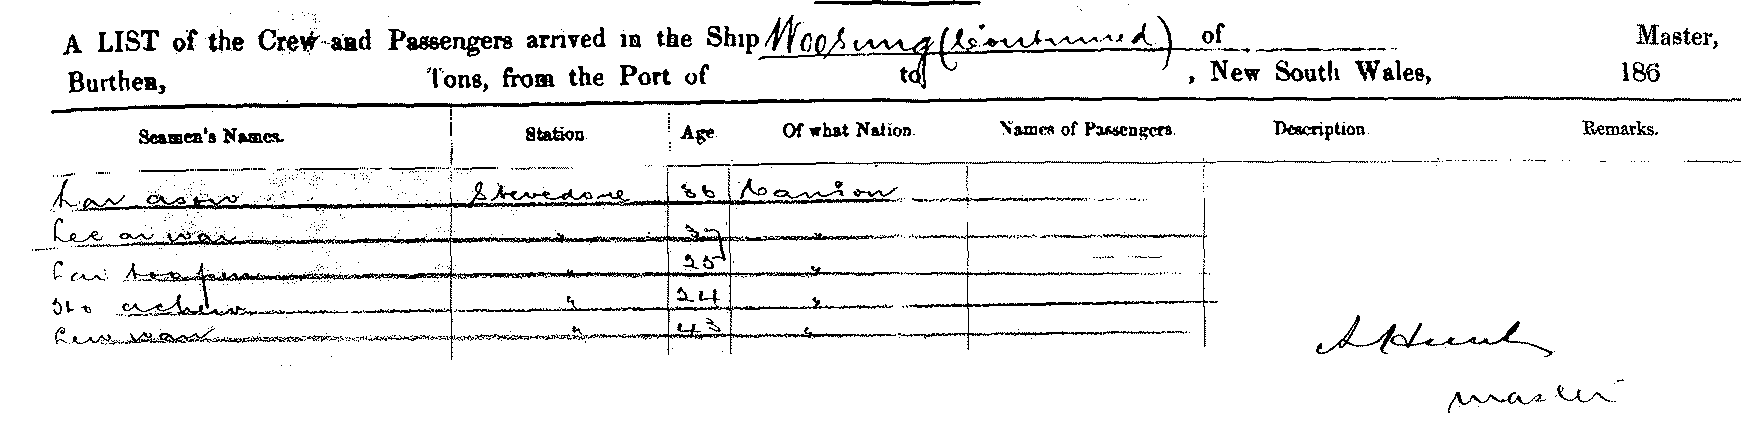 A LIST of the Crew and Passengers arrived in the Ship Woosung (Continued) of Master,
Burthen, Tons, from the Port of to , New South Wales, 186
Seamen's Names. Station Age Of what Nation. Names of Passengers. Description Remarks.
Stevedore 36 Canton
Lee " 37 "
" 25 "
" 24 "
" 43 "
A Hunt
Master